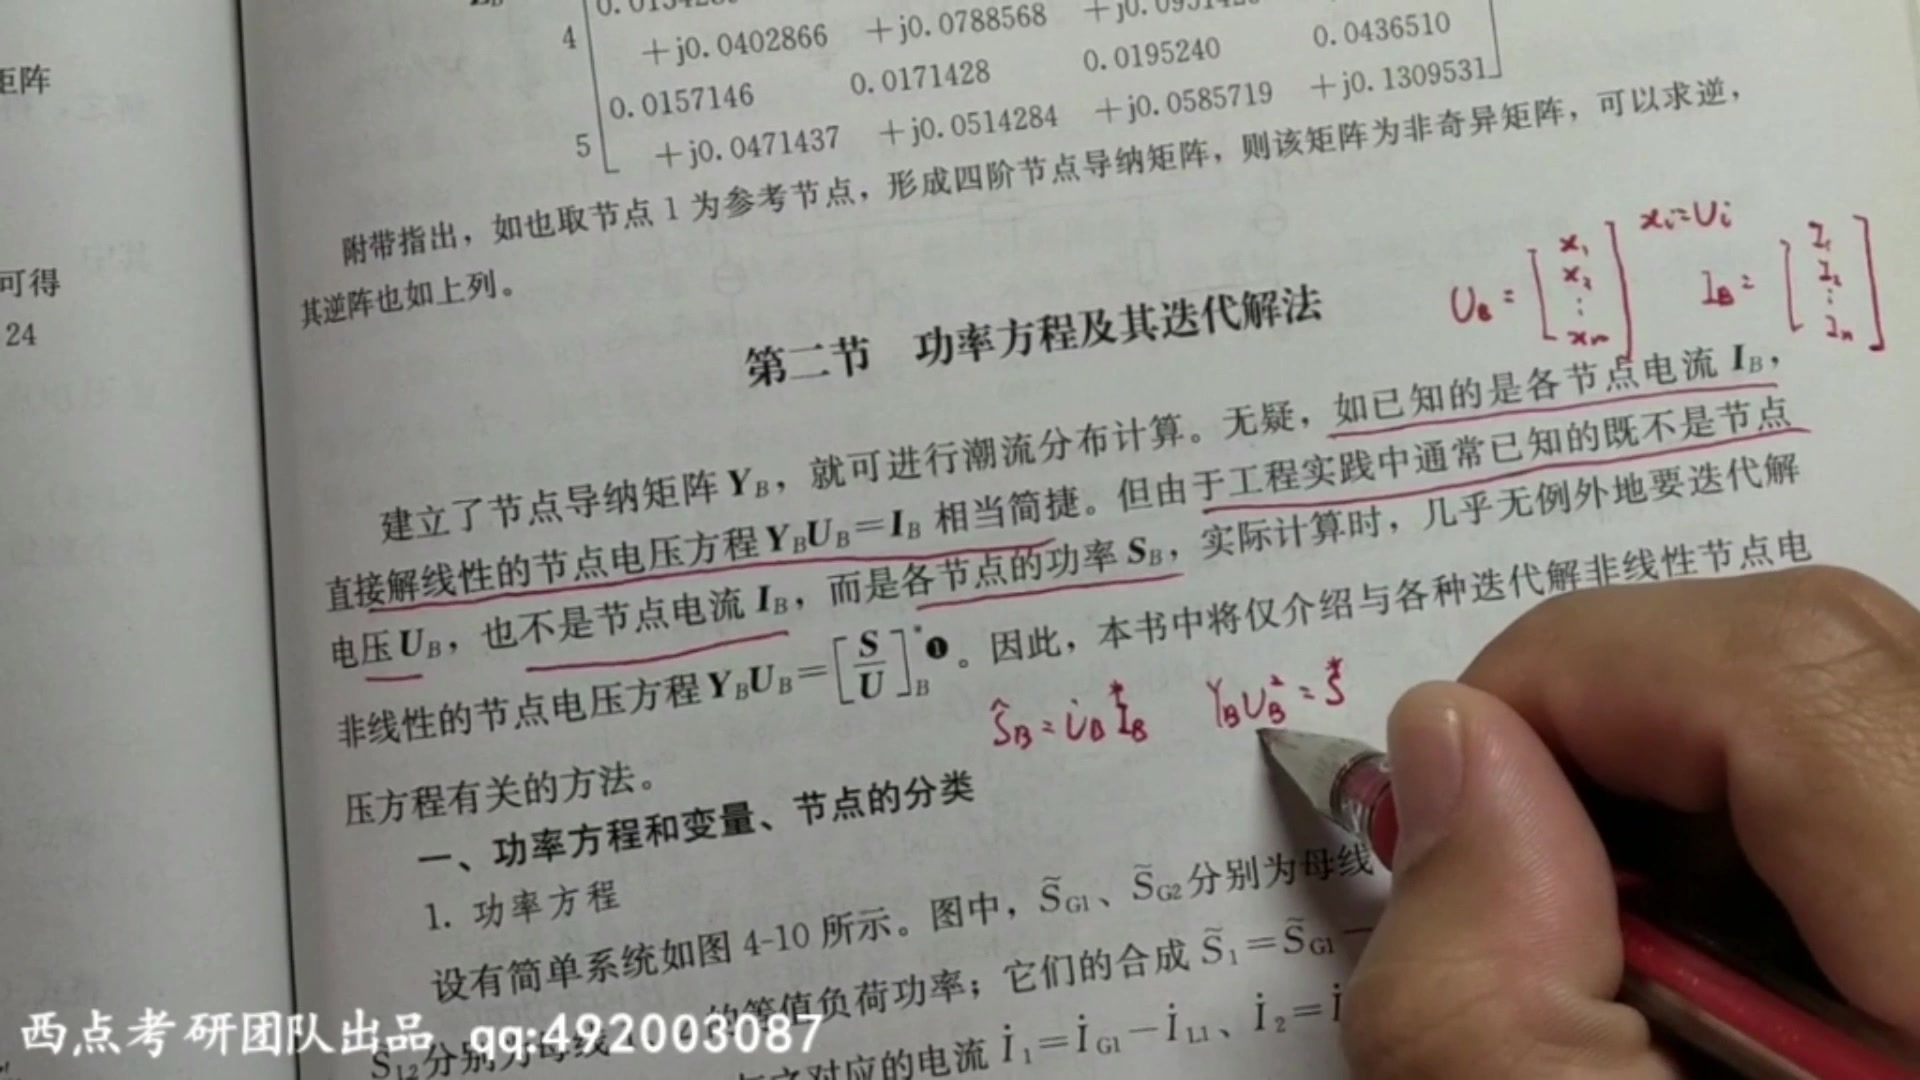 矩阵
可得
24
4
+j0.0402866 +j0.0788568
0.0157146 0.0171428 0.0195240 0.0436510
5 +j0.0471437 +j0.0514284 +j0.0585719 +j0.1309531
附带指出，如也取节点 1 为参考节点，形成四阶节点导纳矩阵，则该矩阵为非奇异矩阵，可以求逆，
其逆阵也如上列。
U_B = [x₁ x₂ ⋮ xₙ] xᵢ=Uᵢ I_B = [I₁ I₂ ⋮ Iₙ]
第二节 功率方程及其迭代解法
建立了节点导纳矩阵 Y_B，就可进行潮流分布计算。无疑，如已知的是各节点电流 I_B，
直接解线性的节点电压方程 Y_B U_B = I_B 相当简捷。但由于工程实践中通常已知的既不是节点
电压 U_B，也不是节点电流 I_B，而是各节点的功率 S_B，实际计算时，几乎无例外地要迭代解
非线性的节点电压方程 Y_B U_B = [S/U]*_B ❶。因此，本书中将仅介绍与各种迭代解非线性节点电
S̃_B = U̇_B I*_B Y_B U_B² = S*
压方程有关的方法。
一、功率方程和变量、节点的分类
1. 功率方程
设有简单系统如图 4-10 所示。图中，S̃_G1、S̃_G2 分别为母线
的等值负荷功率；它们的合成 S̃₁ = S̃_G1 −
S̃_12 分别为母线
对应的电流 İ₁ = İ_G1 − İ_L1、İ₂ = İ
西点考研团队出品 qq:492003087